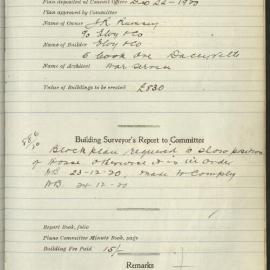 Plan deposited at Council Offices Dec 22 - 1920
Plan approved by Committee
Name of Owner
Name of Builder
Name of Architect War Service
Value of Buildings to be erected £830
Building Surveyor's Report to Committee
Block plan required to show position
of House otherwise it is in order
23-12-20 made to comply
24-12-20
Report Book, folio
Plans Committee Minute Book, page
Building Fee Paid 15/-
Remarks